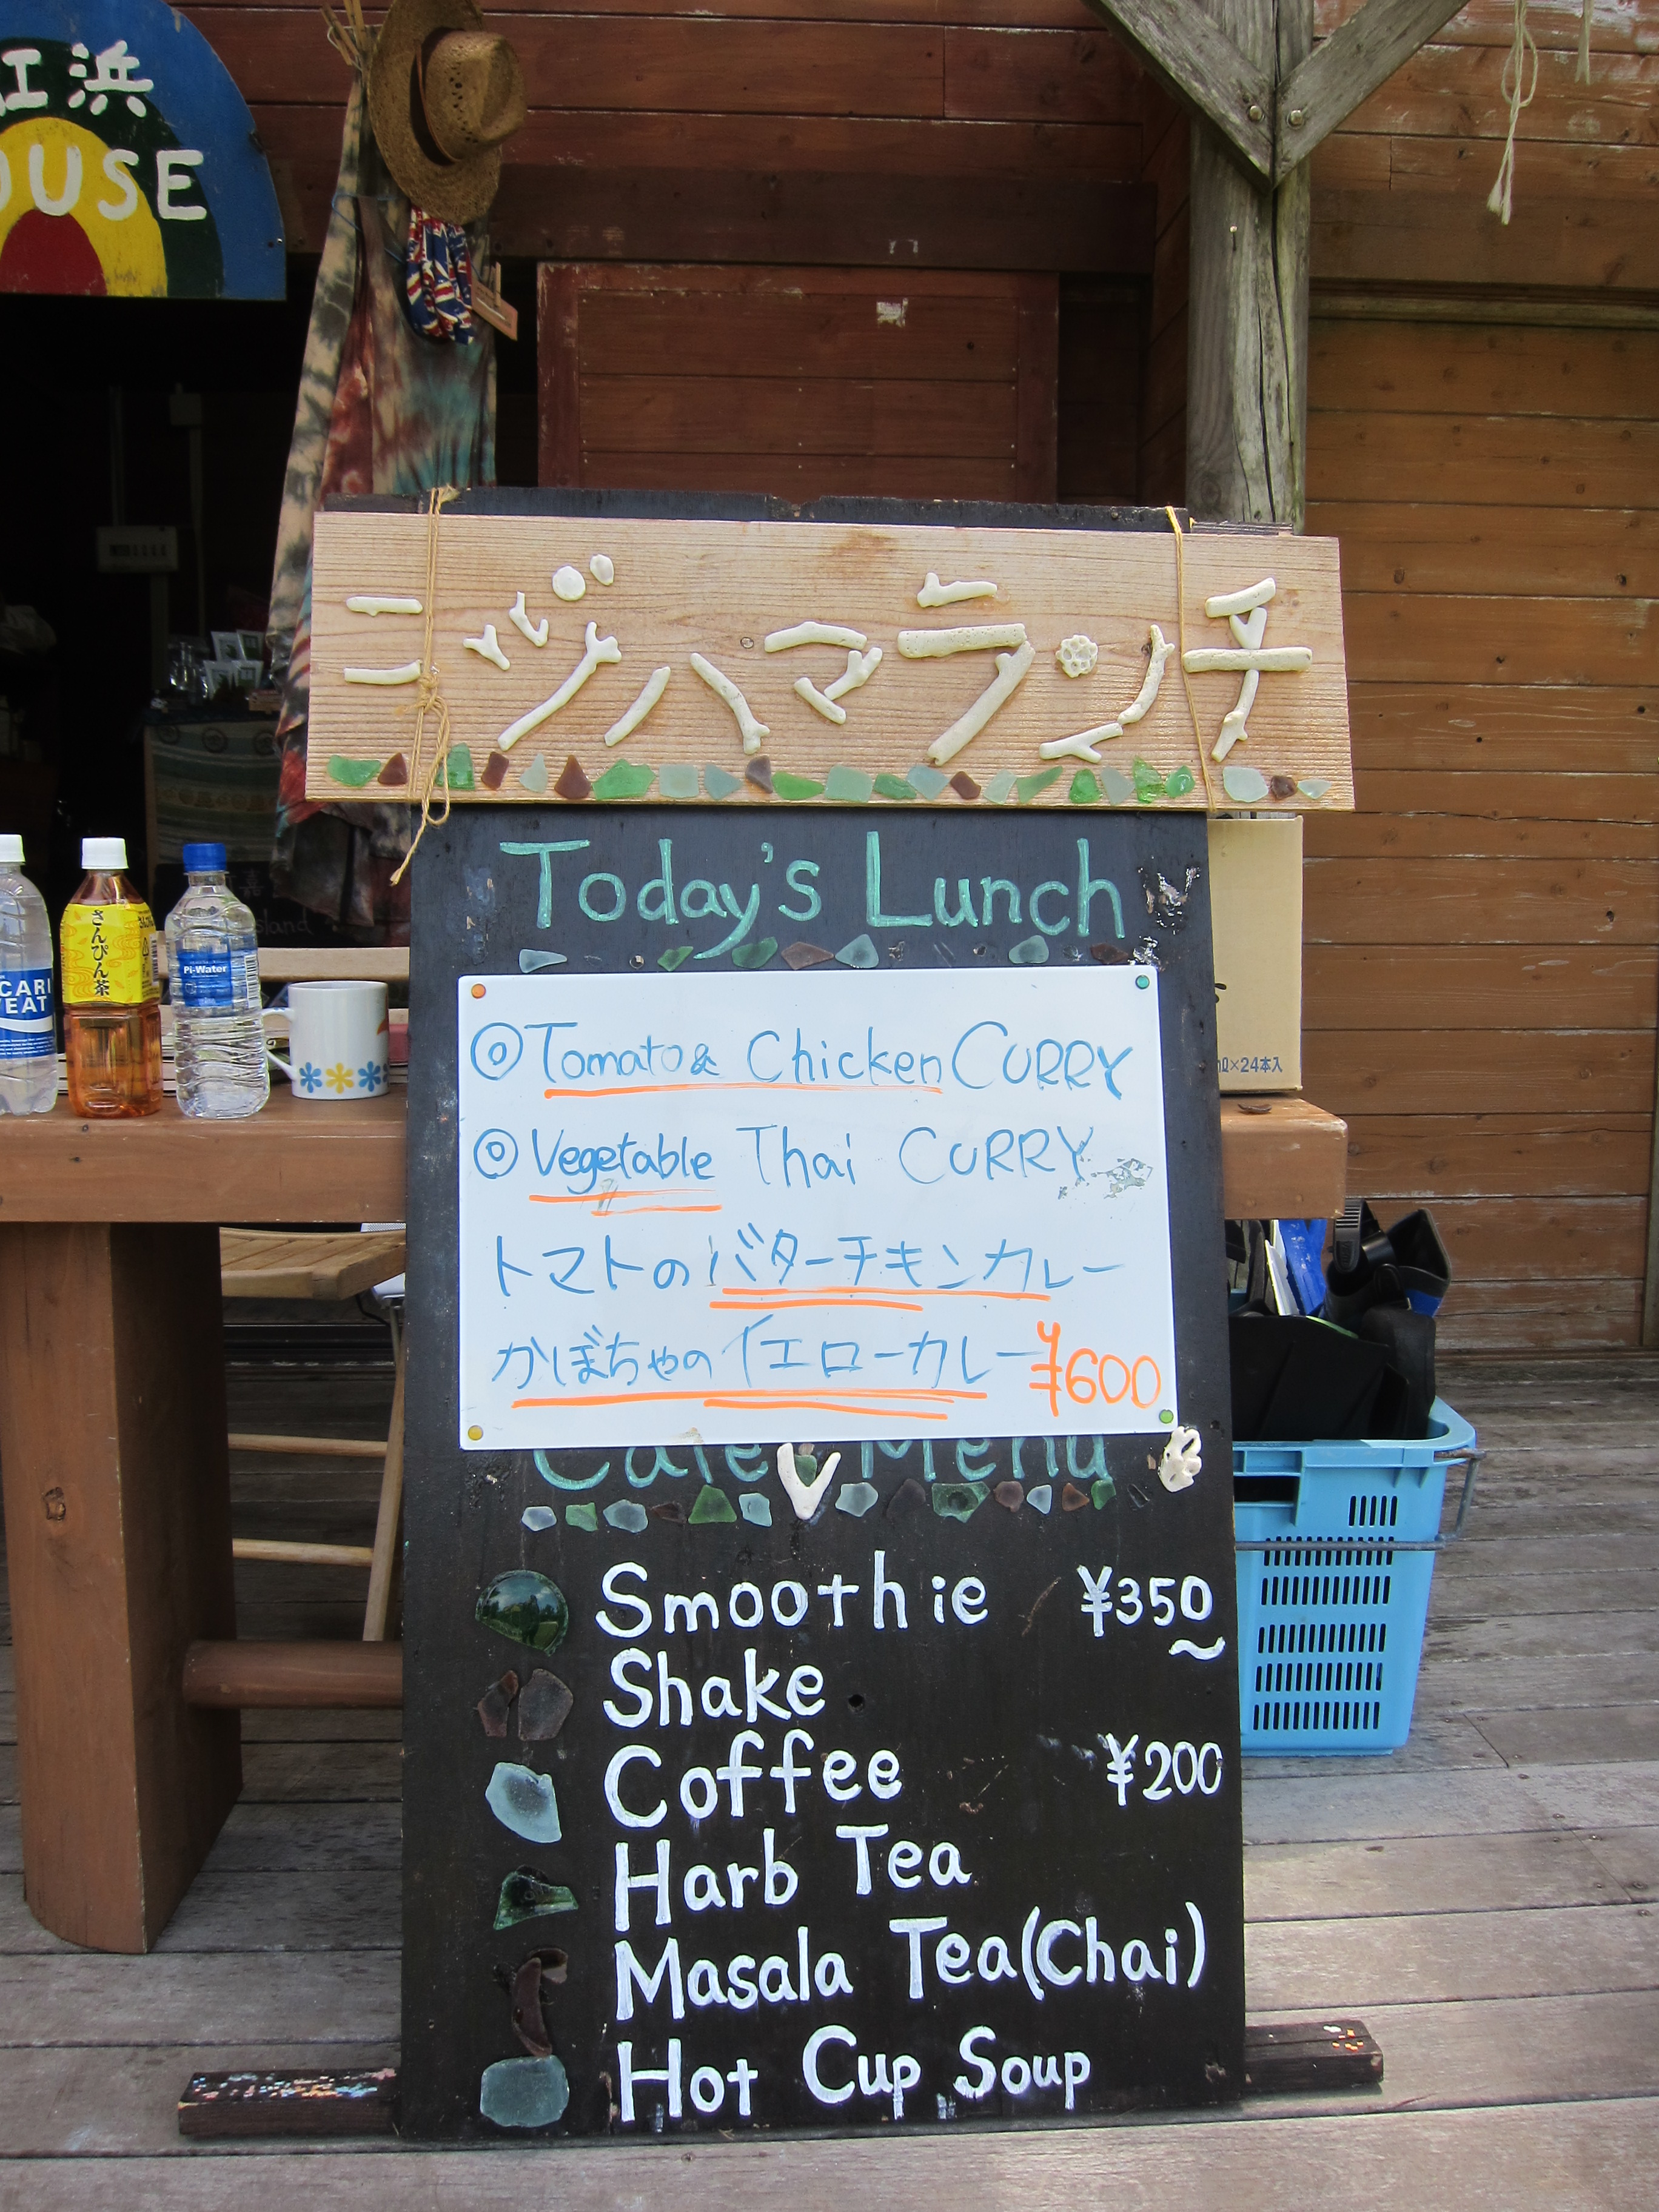 虹浜
OUSE
ニジハマランチ
Today's Lunch
CARI
EAT
さんぴん茶
Pi-Water
◎Tomato & Chicken CURRY
◎Vegetable Thai CURRY
トマトのバターチキンカレー
かぼちゃのイエローカレー ¥600
×24本入
Cafe Menu
Smoothie ¥350
Shake
Coffee ¥200
Harb Tea
Masala Tea(Chai)
Hot Cup Soup